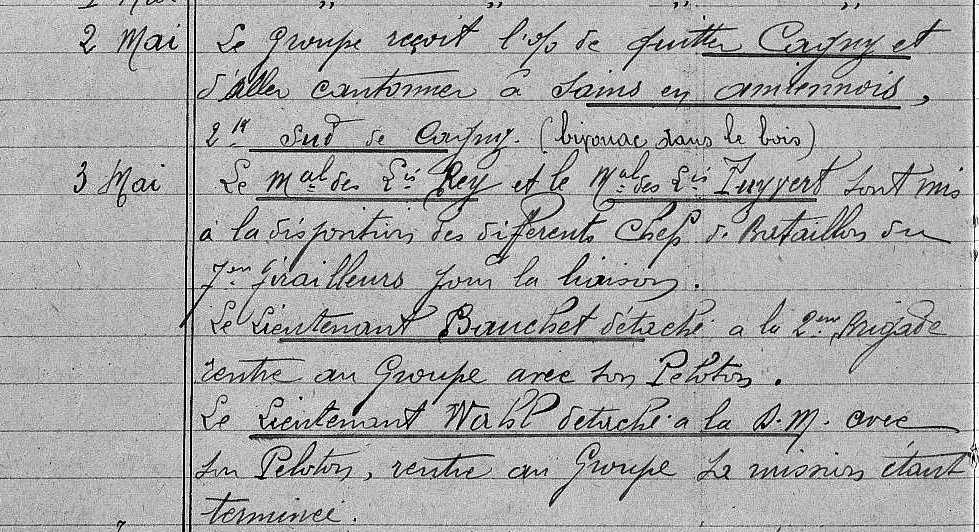 2 Mai Le Groupe reçoit l'o/ de quitter Cagny et
d'aller cantonner à Sains en amiennois,
sud de Cagny. (bivouac dans le bois)
3 Mai Le Mal des Lis Rey et le Mal des Lis Zuyvert sont mis
à la disposition des différents Chefs de Bataillon du
7em Tirailleurs pour la liaison.
Le Lieutenant Bauchet détaché à la 2eme Brigade
rentre au Groupe avec son Peloton.
Le Lieutenant Wahl détaché à la D.M. avec
son Peloton, rentre au Groupe sa mission étant
terminée.